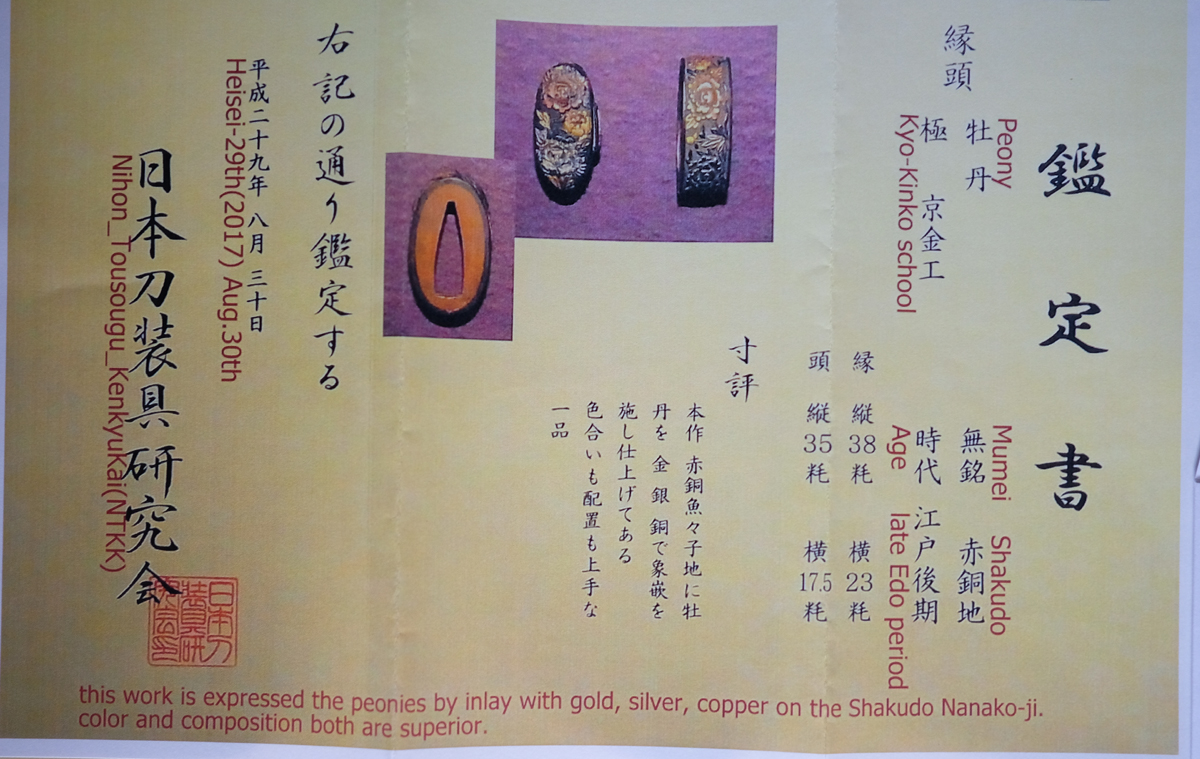 鑑定書
縁頭
牡丹
Peony
極 京金工
Kyo-Kinko school
無銘 赤銅地
Mumei Shakudo
時代 江戸後期
Age late Edo period
縁 縦 38 粍 横 23 粍
頭 縦 35 粍 横 17.5 粍
寸評
本作 赤銅魚々子地に牡
丹を 金 銀 銅で象嵌を
施し仕上げてある
色合いも配置も上手な
一品
右記の通り鑑定する
平成二十九年 八月 三十日
Heisei-29th(2017) Aug.30th
日本刀装具研究会
Nihon_Tousougu_KenkyuKai(NTKK)
日本刀
装具研
究会印
this work is expressed the peonies by inlay with gold, silver, copper on the Shakudo Nanako-ji.
color and composition both are superior.